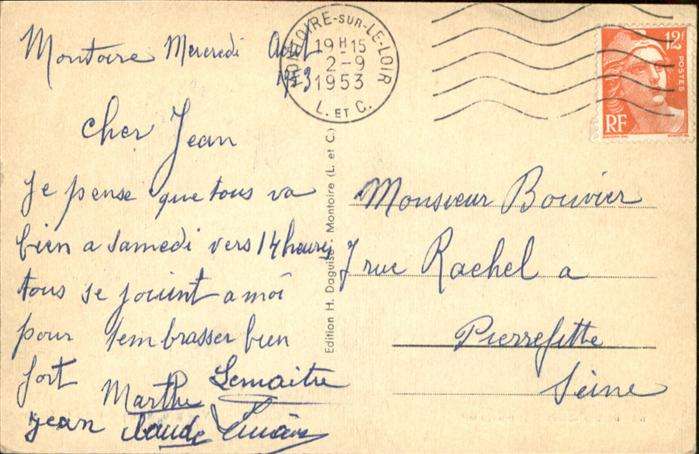 Montoire Mercredi Août
1953
cher Jean
Je pense que tous va
bien a samedi vers 14 heures
tous se joint a moi
pour t'embrasser bien
fort Marthe Lemaitre
Jean Claude
MONTOIRE-SUR-LE-LOIR
19H15
2-9
1953
L. ET C.
12F
POSTES
RF
Edition H. Daguisé, Montoire (L. et C.)
Monsieur Bouvier
7 rue Rachel a
Pierrefitte
Seine